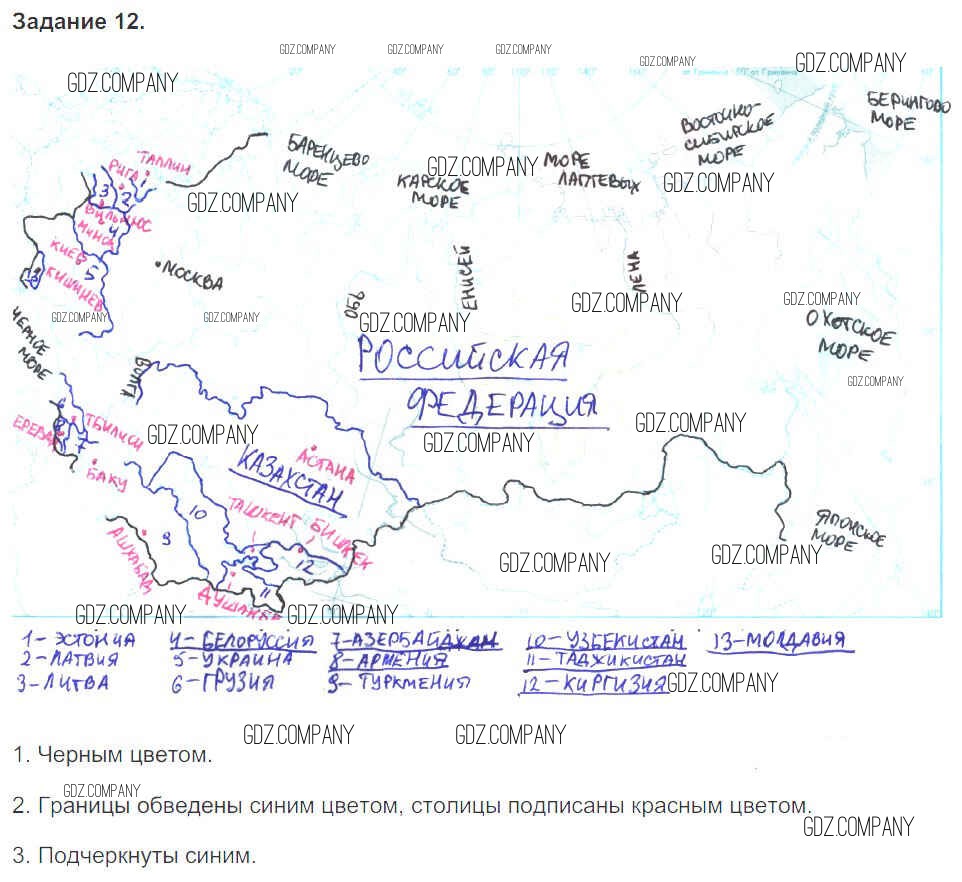 Задание 12.
GDZ.COMPANY GDZ.COMPANY GDZ.COMPANY
GDZ.COMPANY GDZ.COMPANY
GDZ.COMPANY
БЕРИНГОВО
МОРЕ
ВОСТОЧНО-
СИБИРСКОЕ
МОРЕ
БАРЕНЦЕВО
МОРЕ
GDZ.COMPANY
МОРЕ
ЛАПТЕВЫХ
КАРСКОЕ
МОРЕ
GDZ.COMPANY
ТАЛЛИН
РИГА
1
3 2
GDZ.COMPANY
ВИЛЬНЮС
МИНСК
4
КИЕВ
5
КИШИНЕВ
13
МОСКВА
ОБЬ
ЕНИСЕЙ
ЛЕНА
GDZ.COMPANY GDZ.COMPANY
GDZ.COMPANY GDZ.COMPANY GDZ.COMPANY
ОХОТСКОЕ
МОРЕ
ЧЕРНОЕ
МОРЕ
РОССИЙСКАЯ
ФЕДЕРАЦИЯ
ВОЛГА
GDZ.COMPANY
GDZ.COMPANY
GDZ.COMPANY GDZ.COMPANY
6
ТБИЛИСИ
ЕРЕВАН
8 7
БАКУ
АСТАНА
КАЗАХСТАН
ТАШКЕНТ
БИШКЕК
10
9
12
АШХАБАД
ДУШАНБЕ
11
ЯПОНСКОЕ
МОРЕ
GDZ.COMPANY GDZ.COMPANY
GDZ.COMPANY GDZ.COMPANY
1-ЭСТОНИЯ 4-БЕЛОРУССИЯ 7-АЗЕРБАЙДЖАН 10-УЗБЕКИСТАН 13-МОЛДАВИЯ
2-ЛАТВИЯ 5-УКРАИНА 8-АРМЕНИЯ 11-ТАДЖИКИСТАН
3-ЛИТВА 6-ГРУЗИЯ 9-ТУРКМЕНИЯ 12-КИРГИЗИЯ GDZ.COMPANY
GDZ.COMPANY GDZ.COMPANY
1. Черным цветом.
GDZ.COMPANY
2. Границы обведены синим цветом, столицы подписаны красным цветом.
GDZ.COMPANY
3. Подчеркнуты синим.